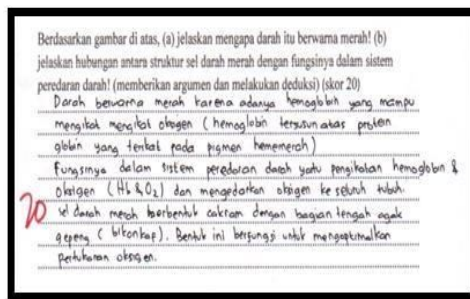 Berdasarkan gambar di atas, (a) jelaskan mengapa darah itu berwarna merah! (b)
jelaskan hubungan antara struktur sel darah merah dengan fungsinya dalam sistem
peredaran darah! (memberikan argumen dan melakukan deduksi) (skor 20)
Darah berwarna merah karena adanya hemoglobin yang mampu
mengikat mengikat oksigen (hemoglobin tersusun atas protein
globin yang terikat pada pigmen hememerah)
Fungsinya dalam sistem peredaran darah yaitu pengikatan hemoglobin &
oksigen (Hb & O2) dan mengedarkan oksigen ke seluruh tubuh.
20 sel darah merah berbentuk cakram dengan bagian tengah agak
gepeng (bikonkap). Bentuk ini berfungsi untuk mengoptimalkan
pertukaran oksigen.